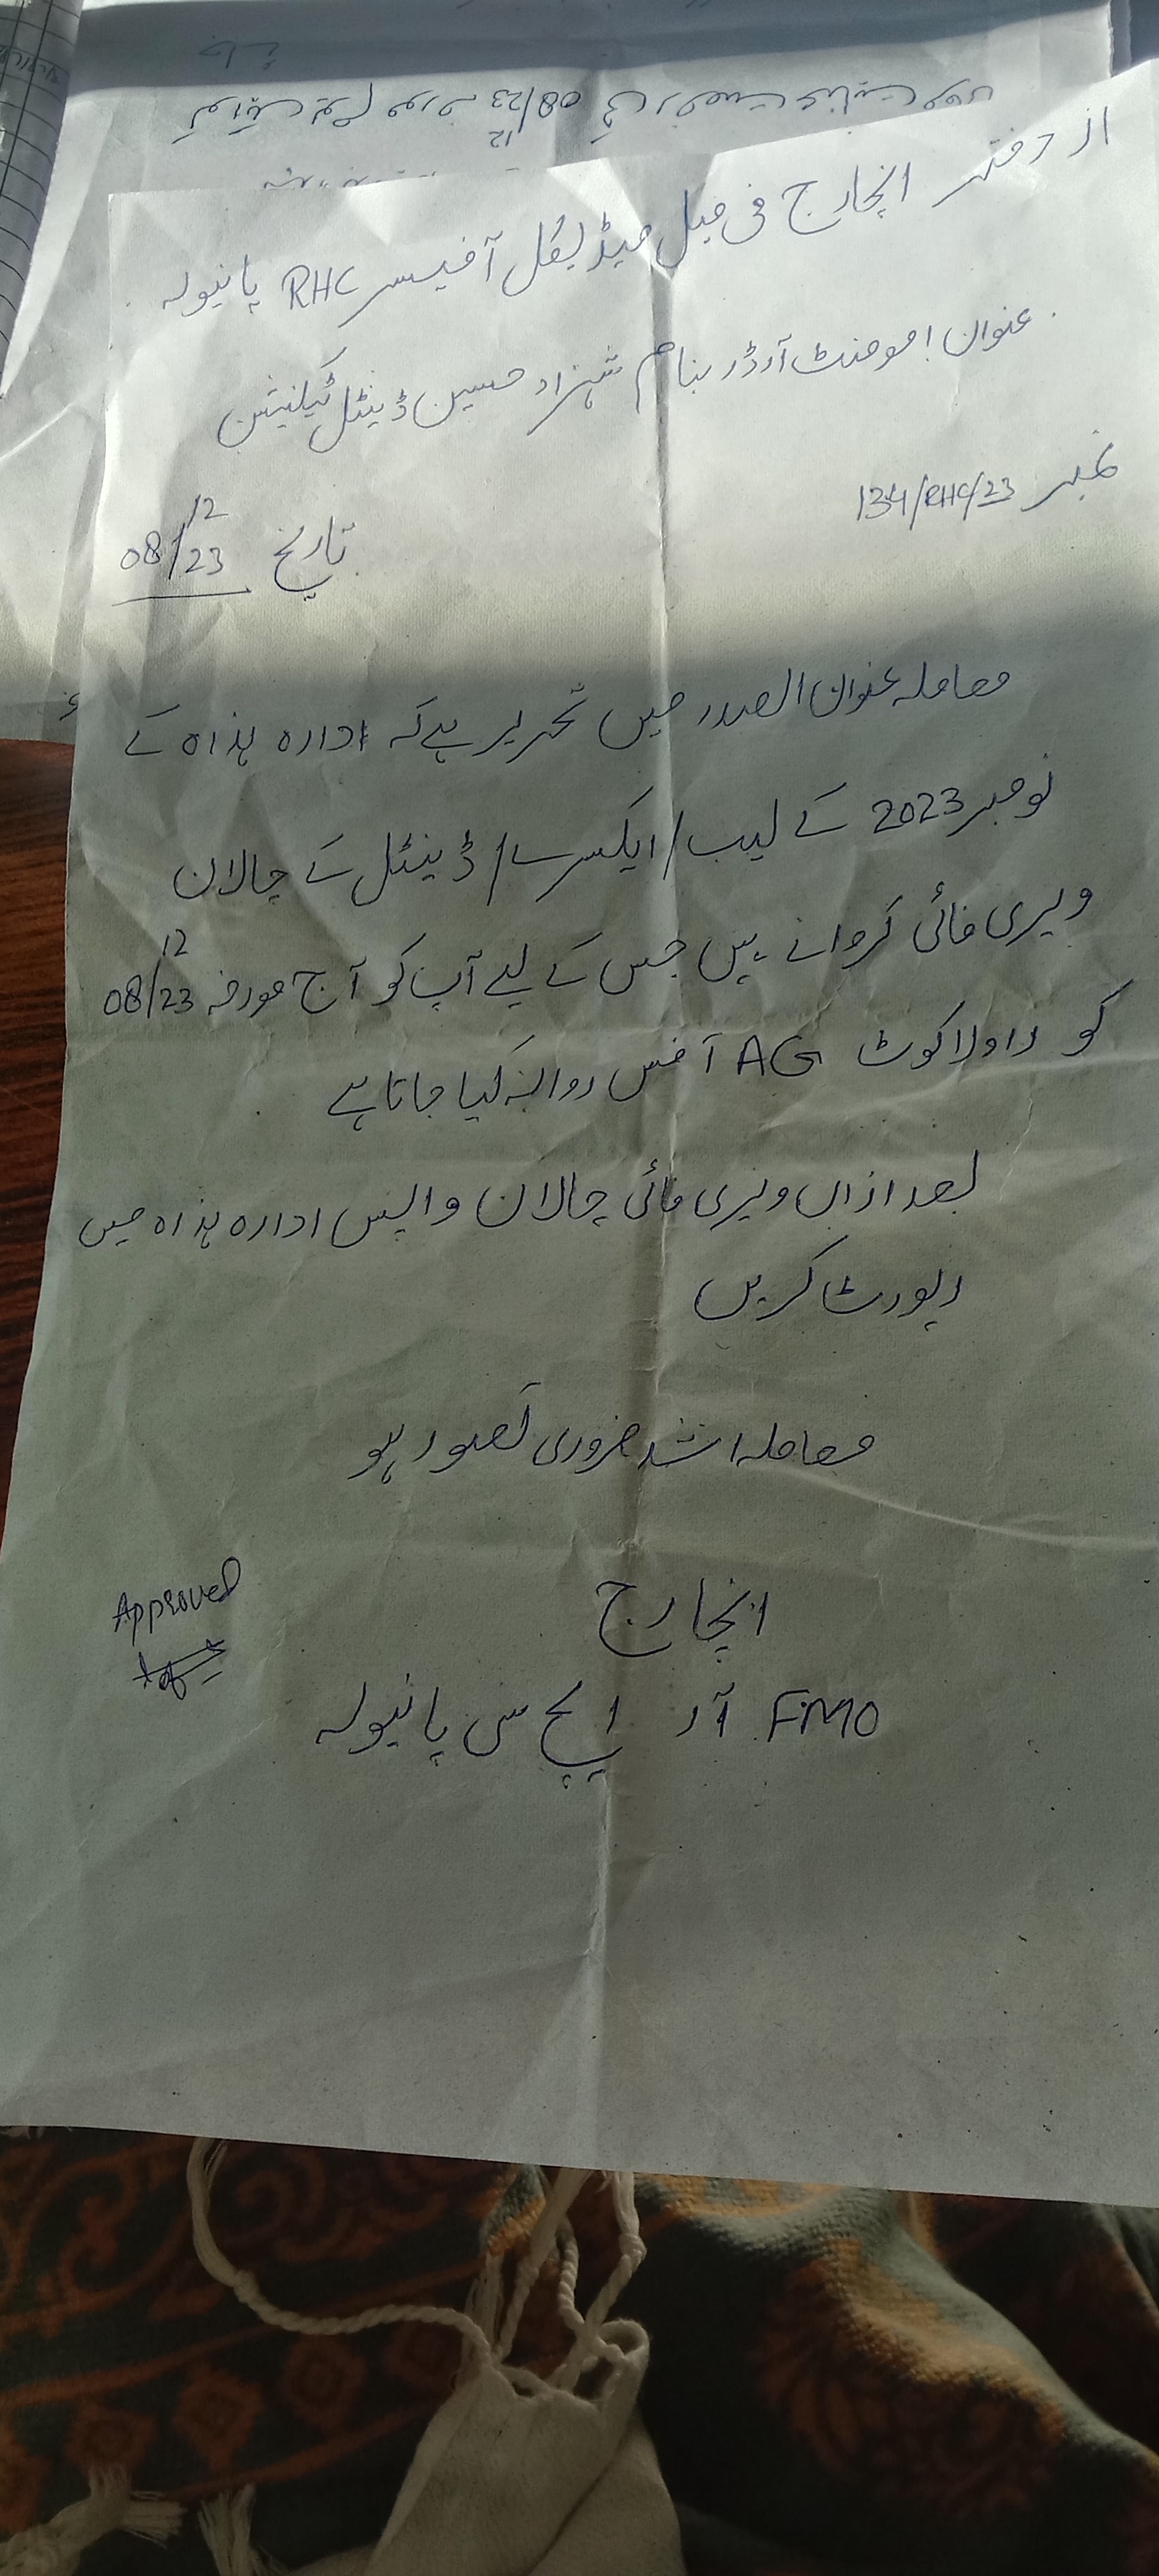 از دفتر انچارج فی میل میڈیکل آفیسر RHC پانیولہ
عنوان! موومنٹ آرڈر بنام شہزاد حسین ڈینٹل ٹیکنیشن
نمبر 134/RHC/23
تاریخ 08/12/23
معاملہ عنوان الصدر میں تحریر ہے کہ ادارہ ہذاہ کے
نومبر 2023 کے لیب/ایکسرے/ڈینٹل کے چالان
ویری فائی کروانے ہیں جس کے لیے آپ کو آج مورخہ 08/12/23
کو راولاکوٹ AG آفس روانہ کیا جاتا ہے
بعد ازاں ویری فائی چالان واپس ادارہ ہذاہ میں
رپورٹ کریں
معاملہ اشد ضروری تصور ہو
انچارج
Approved
FMO آر ایچ سی پانیولہ